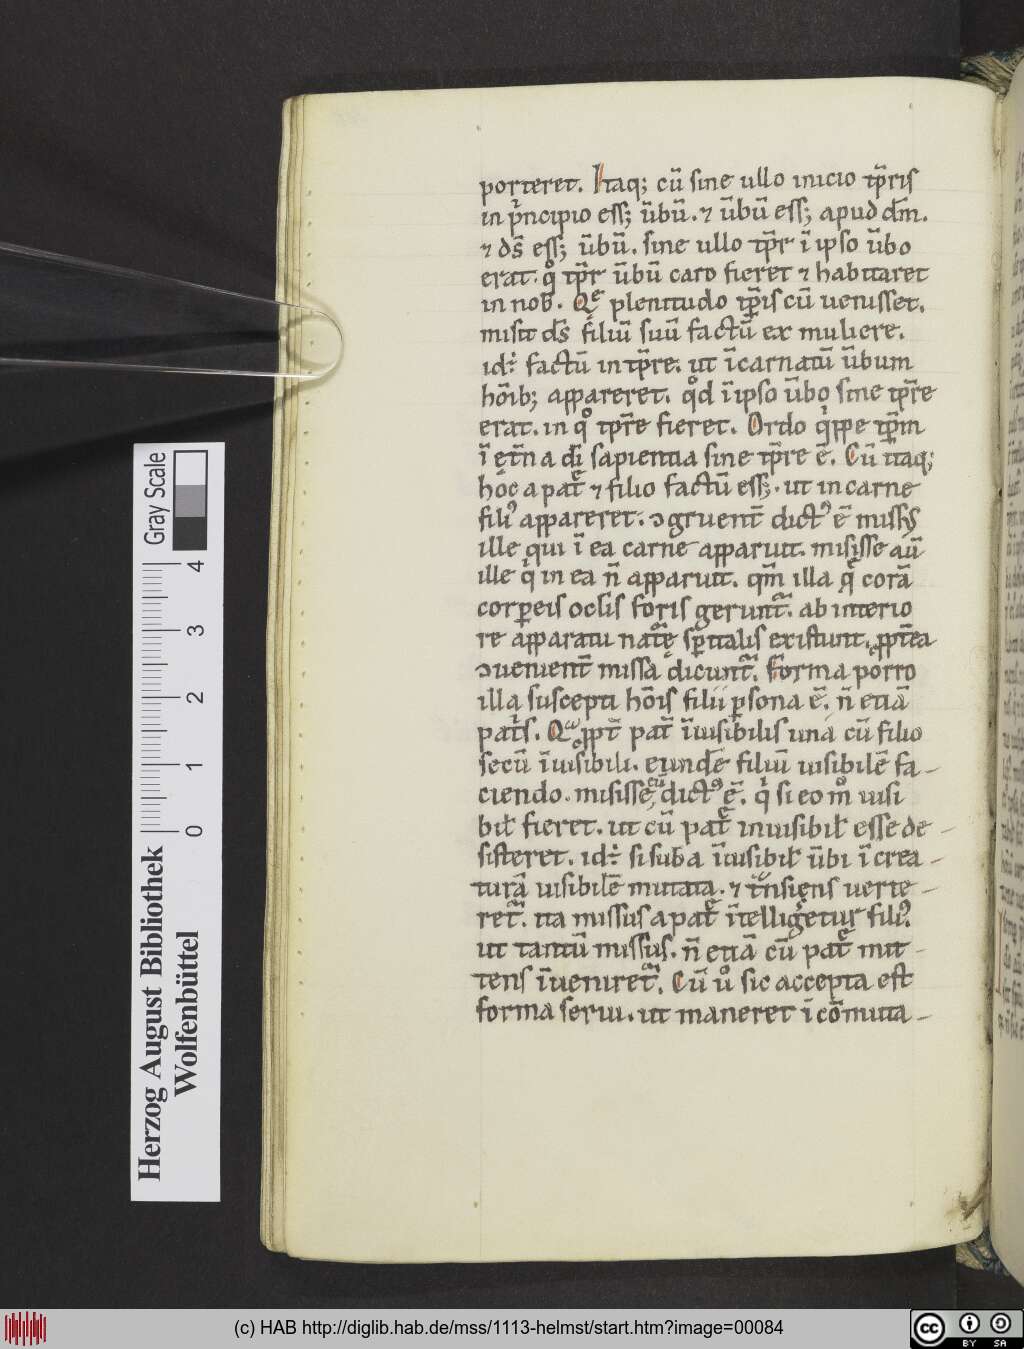 porteret. Itaq; cū sine ullo inicio tp̄ris
in pⁱncipio eſſ; ūbū. ⁊ ūbū eſſ; apud dm̄.
⁊ ds̄ eſſ; ūbū. sine ullo tp̄r ī ipso ūbo
erat. qͦ tp̄r ūbū caro fieret ⁊ habitaret
in nob̄. Qͤ plenitudo tp̄is cū uenisset.
misit ds̄ filiū suū factū ex muliere.
id: factū in tp̄re. ut īcarnatū ūbum
hōib; appareret. qͦd ī ipso ūbo sine tp̄re
erat. in qͦ tp̄re fieret. Ordo qⁱppe tp̄m
ī et̄na dī sapientia sine tp̄re ē. Cū itaq;
hoc a patͤ ⁊ filio factū eſſ;. ut in carne
filiꝰ appareret. ꝯgruent̄ dictꝰ ē miss
ille qui ī ea carne apparuit. misisse aū
ille qⁱ in ea n̄ apparuit. qm̄ illa qͤ corā
corpeis oclis foris gerunt̄. ab interio
re apparatu natͣę spitalis existunt. ꝓpt̄ea
ꝯuenient̄ missa dicunt̄. Forma porro
illa suscepti hōis filii psona ē. n̄ etiā
patⁱs. Qͣ ꝓpt̄ pat̄ īuisibilis una cū filio
secū īuisibili. eundē filiū uisibilē fa-
ciendo. misisse eū dictꝰ ē. qⁱ si eo mͦ uisi
bil̄ fieret. ut cū patͤ inuisibil̄ esse de-
sisteret. id: si suba īuisibil̄ ūbi ī crea-
turā uisibilē mutata. ⁊ tͣnsiens uerte-
ret̄. ita missus a patͤ ītelligeretur filiꝰ.
ut tantū missus. n̄ etiā cū patͤ mit-
tens īueniret̄. Cū uͦ sic accepta est
forma serui. ut maneret īcōmuta-
Herzog August Bibliothek
Wolfenbüttel
Gray Scale
0 1 2 3 4
(c) HAB http://diglib.hab.de/mss/1113-helmst/start.htm?image=00084
cc BY SA